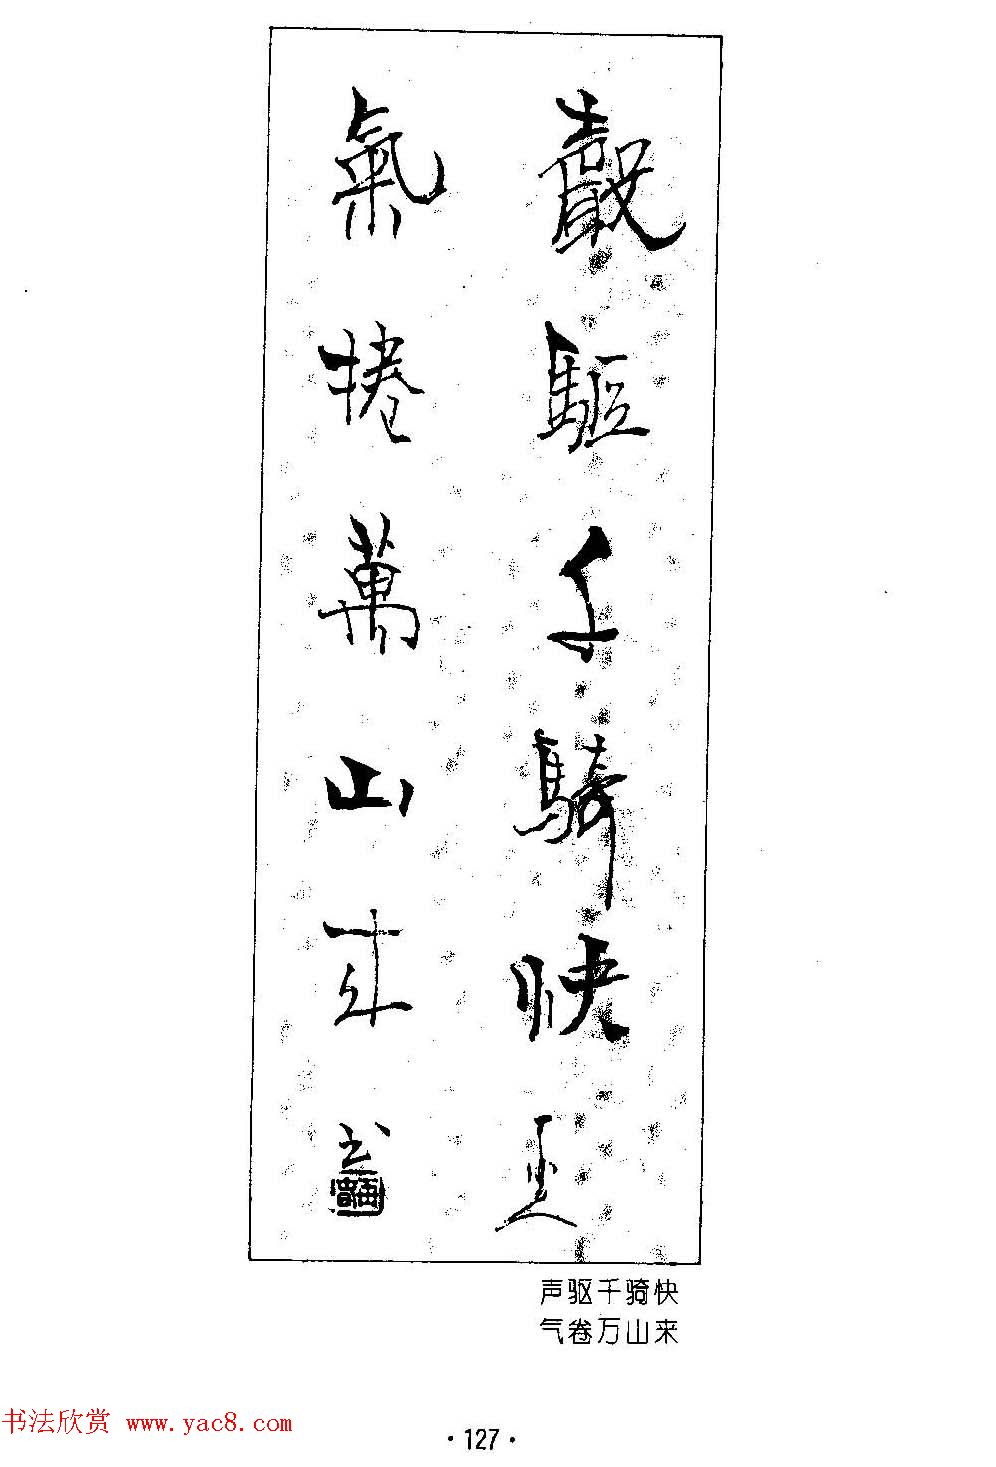 聲驅千騎快
氣捲萬山來
声驱千骑快
气卷万山来
书法欣赏 www.yac8.com
·127·